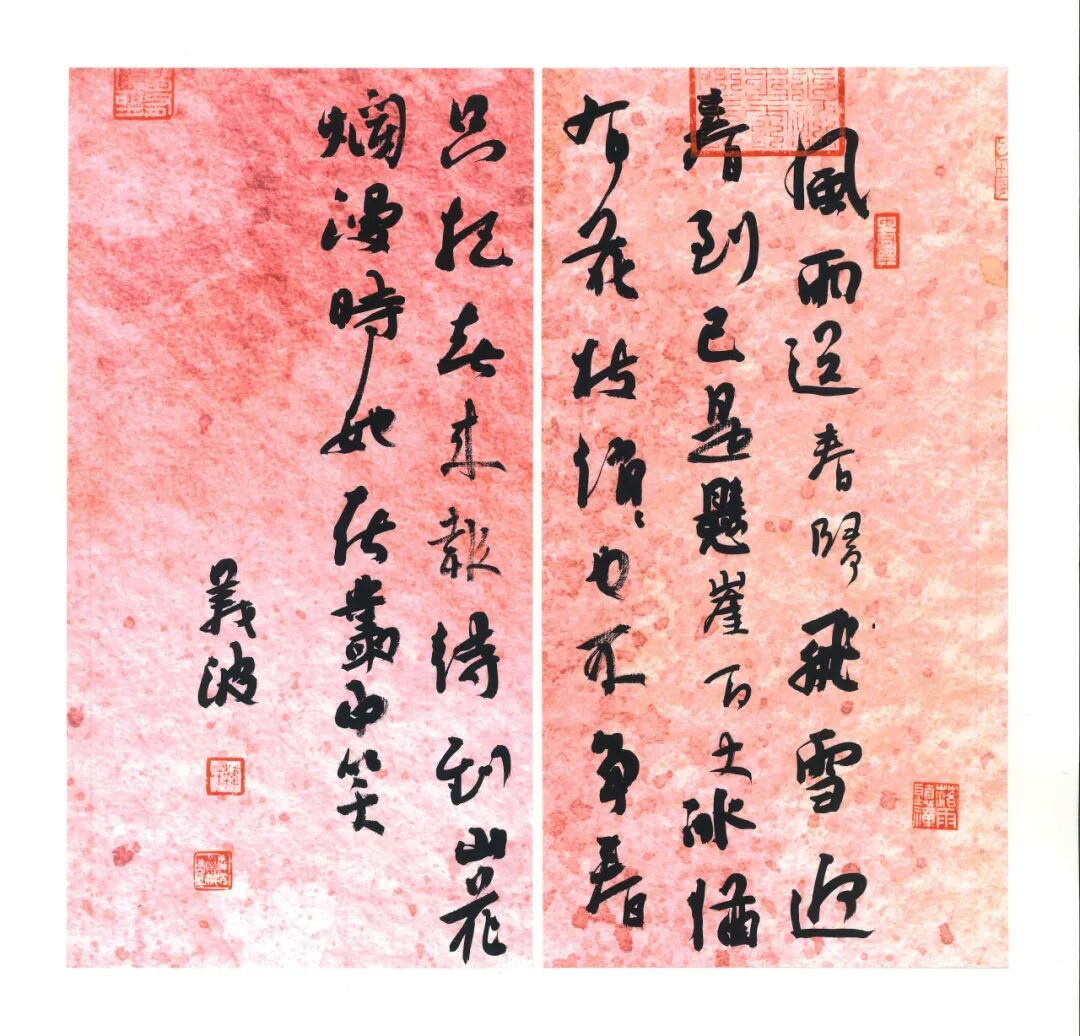 風雨送春歸飛雪迎
春到已是懸崖百丈冰猶
有花枝俏〻也不争春
只把春来報待到山花
爛漫時她在叢中笑
義波
落雨聽禪